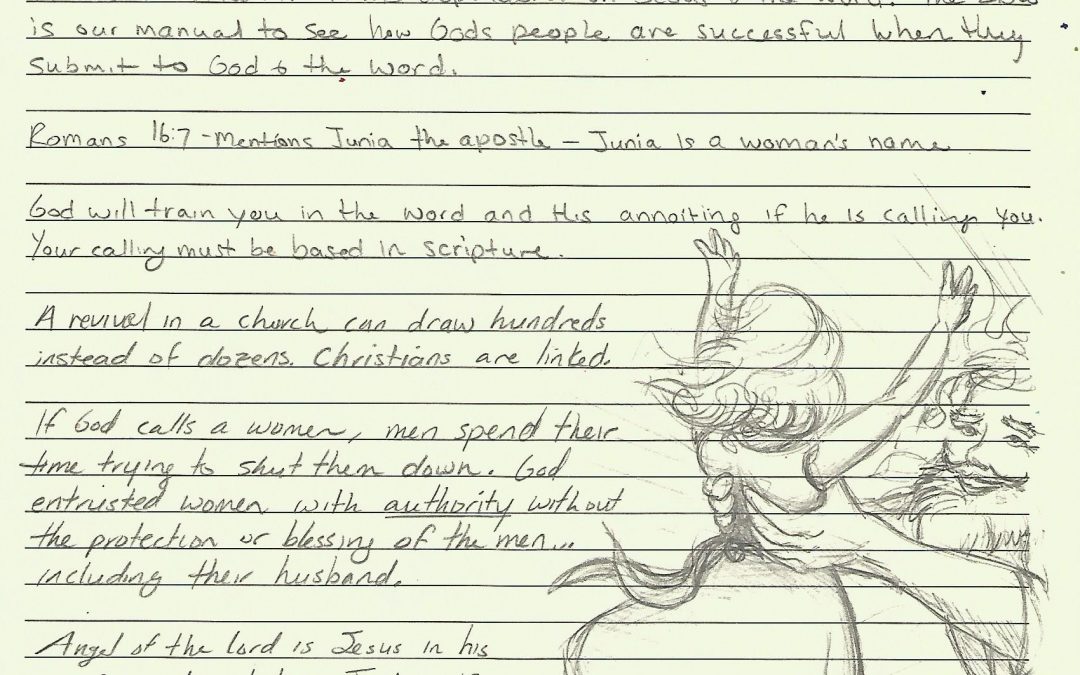 is our manual to see how Gods people are successful when they
submit to God & the word.
Romans 16:7 - Mentions Junia the apostle - Junia is a woman's name
God will train you in the word and His annoiting if he is calling you.
Your calling must be based in scripture.
A revival in a church can draw hundreds
instead of dozens. Christians are linked.
If God calls a women, men spend their
time trying to shut them down. God
entrusted women with authority without
the protection or blessing of the men...
including their husband.
Angel of the lord is Jesus in his